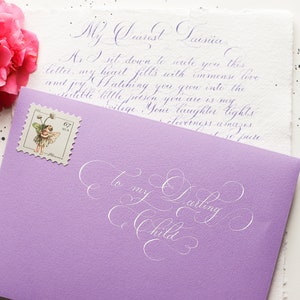 My Dearest
As I sit down to write you this
letter, my heart fills with immense love
and joy. Watching you grow into the
little person you are is my
Your laughter lights
to my Darling
Child